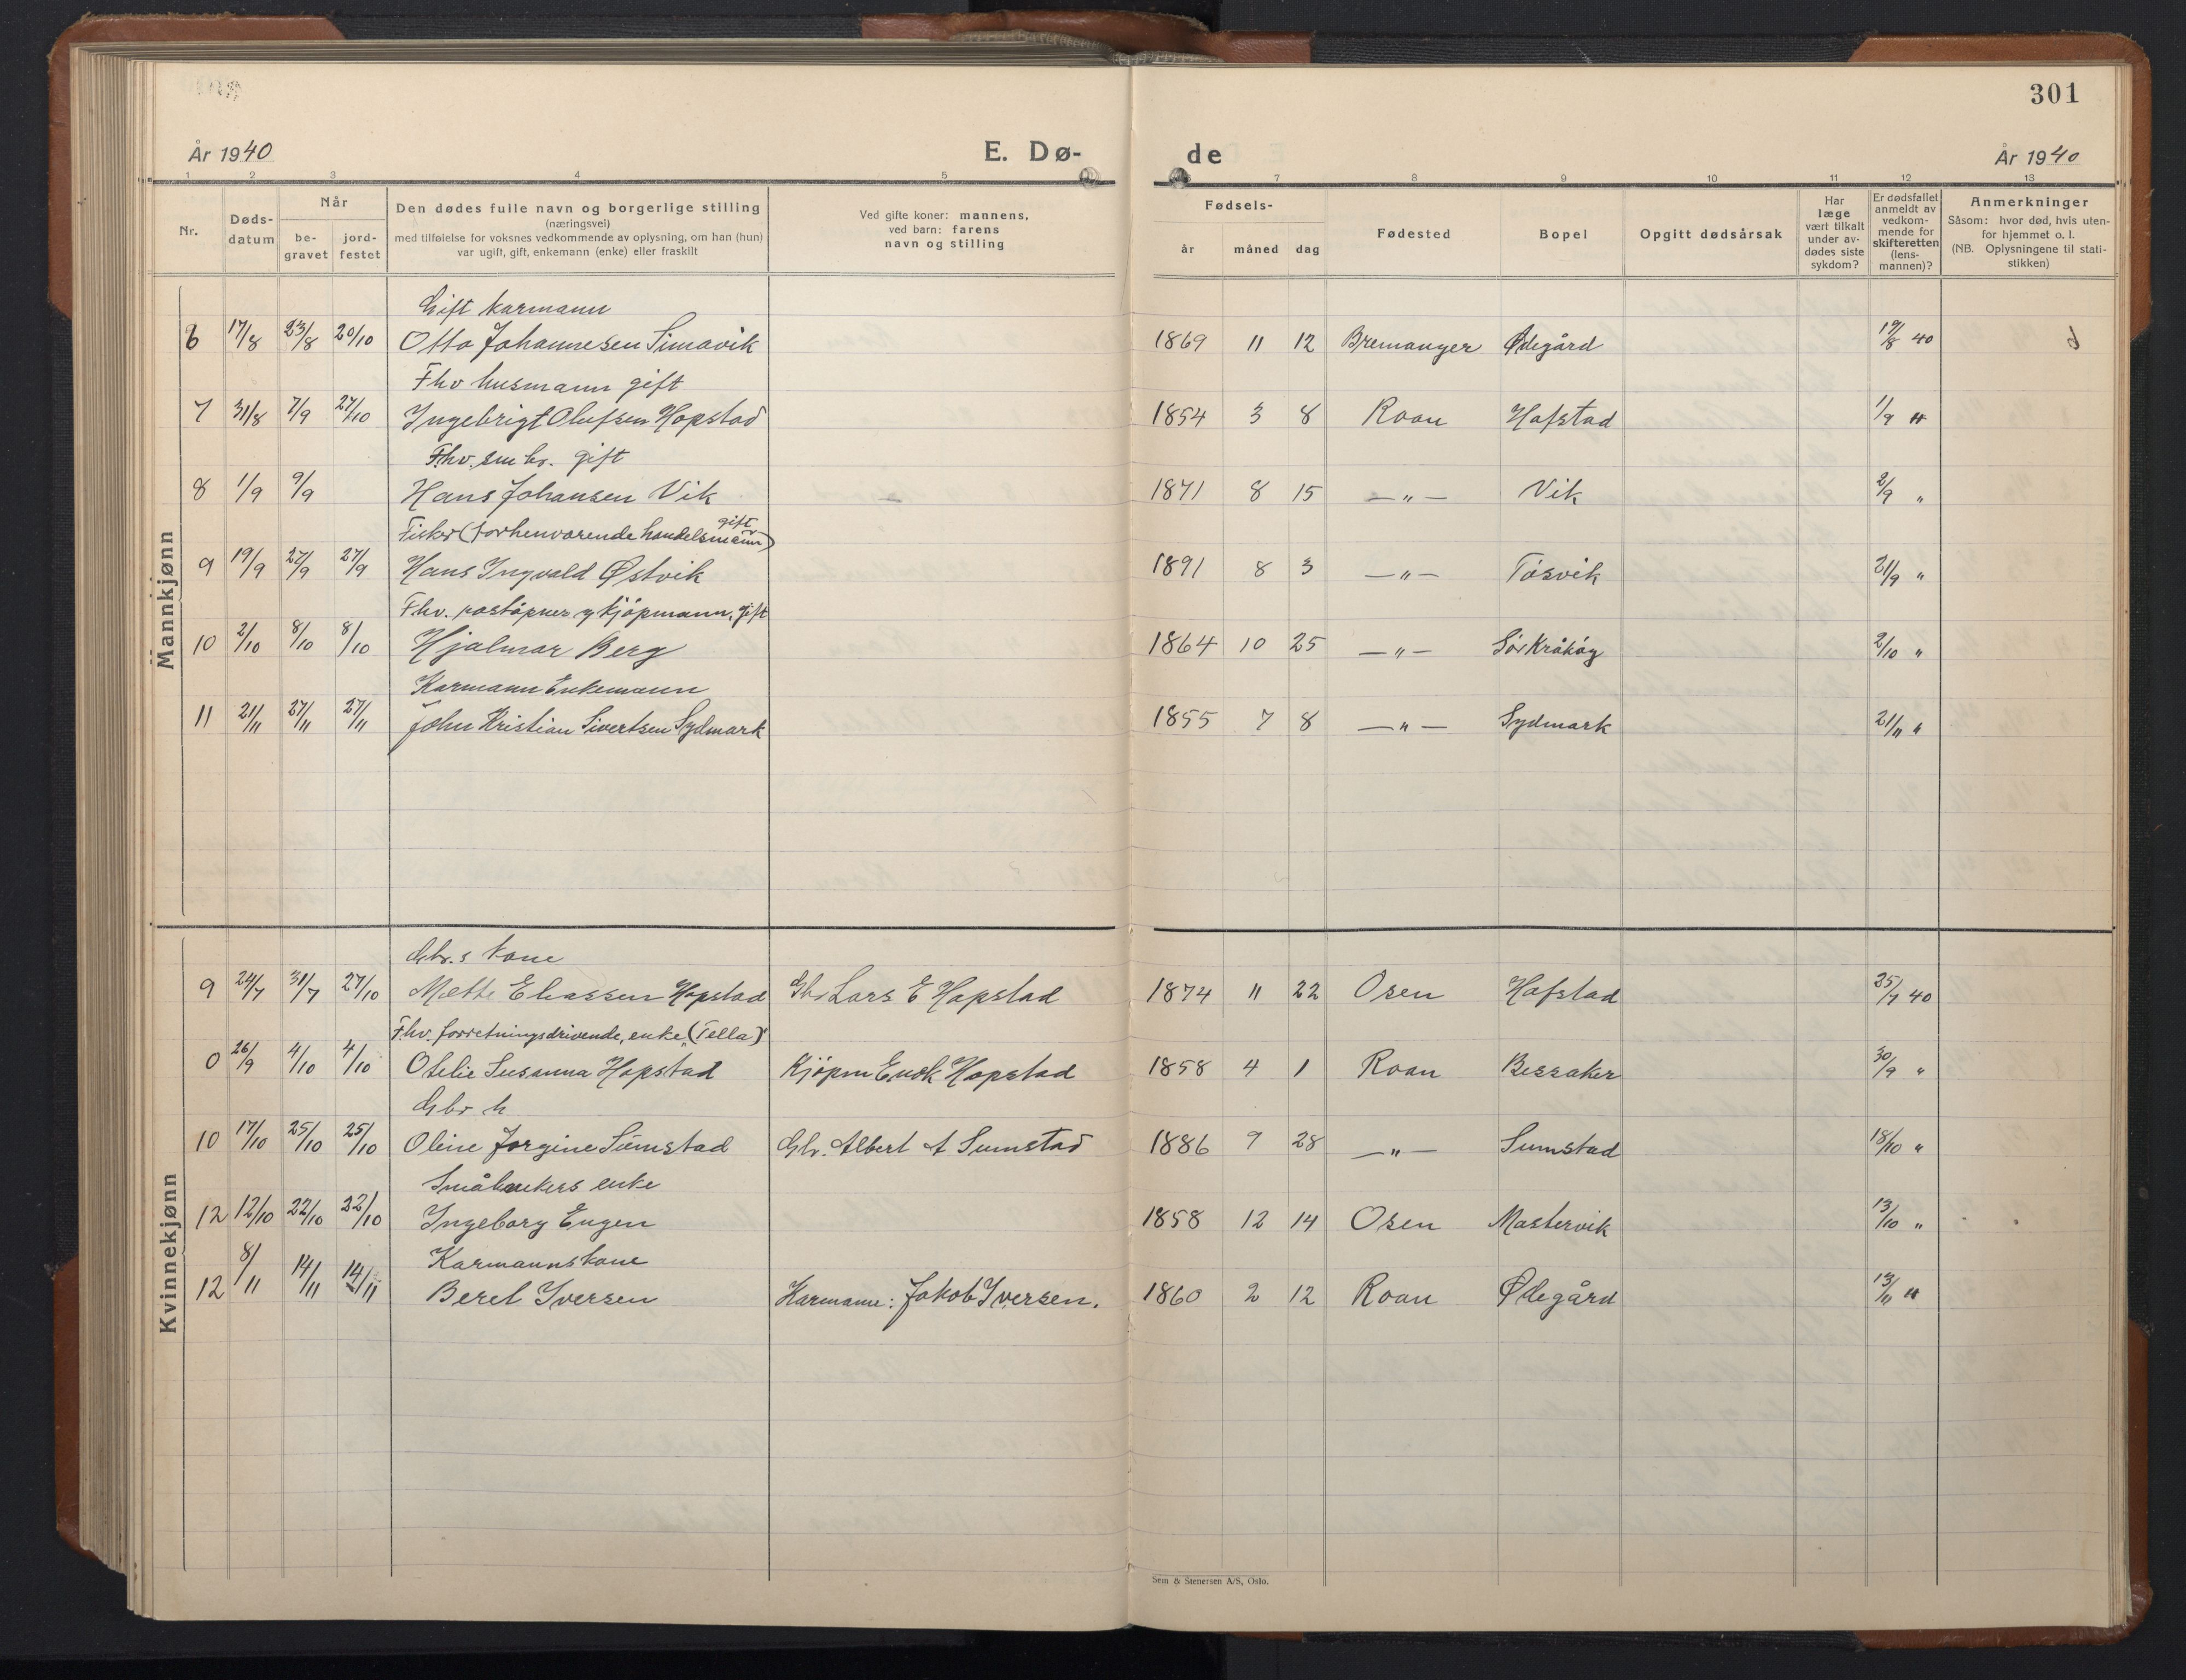 301
År 1940 E. Dø- de År 1940
1 2 3 4 5 7 8 9 10 11 12 13
Nr.
Døds-
datum
Når
be-
gravet
jord-
festet
Den dødes fulle navn og borgerlige stilling
(næringsvei)
med tilføielse for voksnes vedkommende av oplysning, om han (hun)
var ugift, gift, enkemann (enke) eller fraskilt
Ved gifte koner: mannens,
ved barn: farens
navn og stilling
Fødsels-
år måned dag
Fødested
Bopel
Opgitt dødsårsak
Har
læge
vært tilkalt
under av-
dødes siste
sykdom?
Er dødsfallet
anmeldt av
vedkom-
mende for
skifteretten
(lens-
mannen)?
Anmerkninger
Såsom: hvor død, hvis uten-
for hjemmet o. l.
(NB. Oplysningene til stati-
stikken)
Mannkjønn
Gift karmann
6 17/8 23/8 20/10 Otto Johannesen Simavik 1869 11 12 Bremanger Ødegård 19/8 40
Fhv husmann gift
7 31/8 7/9 27/10 Ingebrigt Olufsen Hopstad 1854 3 8 Roan Hofstad 1/9 "
Fhv. smbr. gift
8 1/9 9/9 Hans Johansen Vik 1871 8 15 —"— Vik 2/9 "
gift
Fisker (forhenværende handelsmann)
9 19/9 27/9 27/9 Hans Ingvald Østvik 1891 8 3 —"— Tøsvik 21/9 "
Fhv. poståpner og kjøpmann, gift
10 2/10 8/10 8/10 Hjalmar Berg 1864 10 25 —"— Sør Kråkøy 2/10 "
Karmann Enkemann
11 21/11 27/11 27/11 John Kristian Sivertsen Sydmark 1855 7 8 —"— Sydmark 21/11 "
Kvinnekjønn
Gbr.s kone
9 24/7 31/7 27/10 Mette Eliassen Hopstad Gbr Lars E Hopstad 1874 11 22 Osen Hofstad 25/7 40
Fhv. forretningsdrivende, enke, (Tella)
0 26/9 4/10 4/10 Otelie Susanna Hopstad Kjøpm Enok Hopstad 1858 4 1 Roan Bessaker 30/9 "
Gbr h
10 17/10 25/10 25/10 Oline Jorgine Sumstad Gbr. Albert A Sumstad 1886 9 28 —"— Sumstad 18/10 "
Småbrukers enke
12 12/10 22/10 22/10 Ingeborg Eugen 1858 12 14 Osen Mastervik 13/10 "
Karmannskone
12 8/11 14/11 14/11 Beret Iversen Karmann: Jakob Iversen. 1860 2 12 Roan Ødegård 13/11 "
Sem & Stenersen A/S, Oslo.